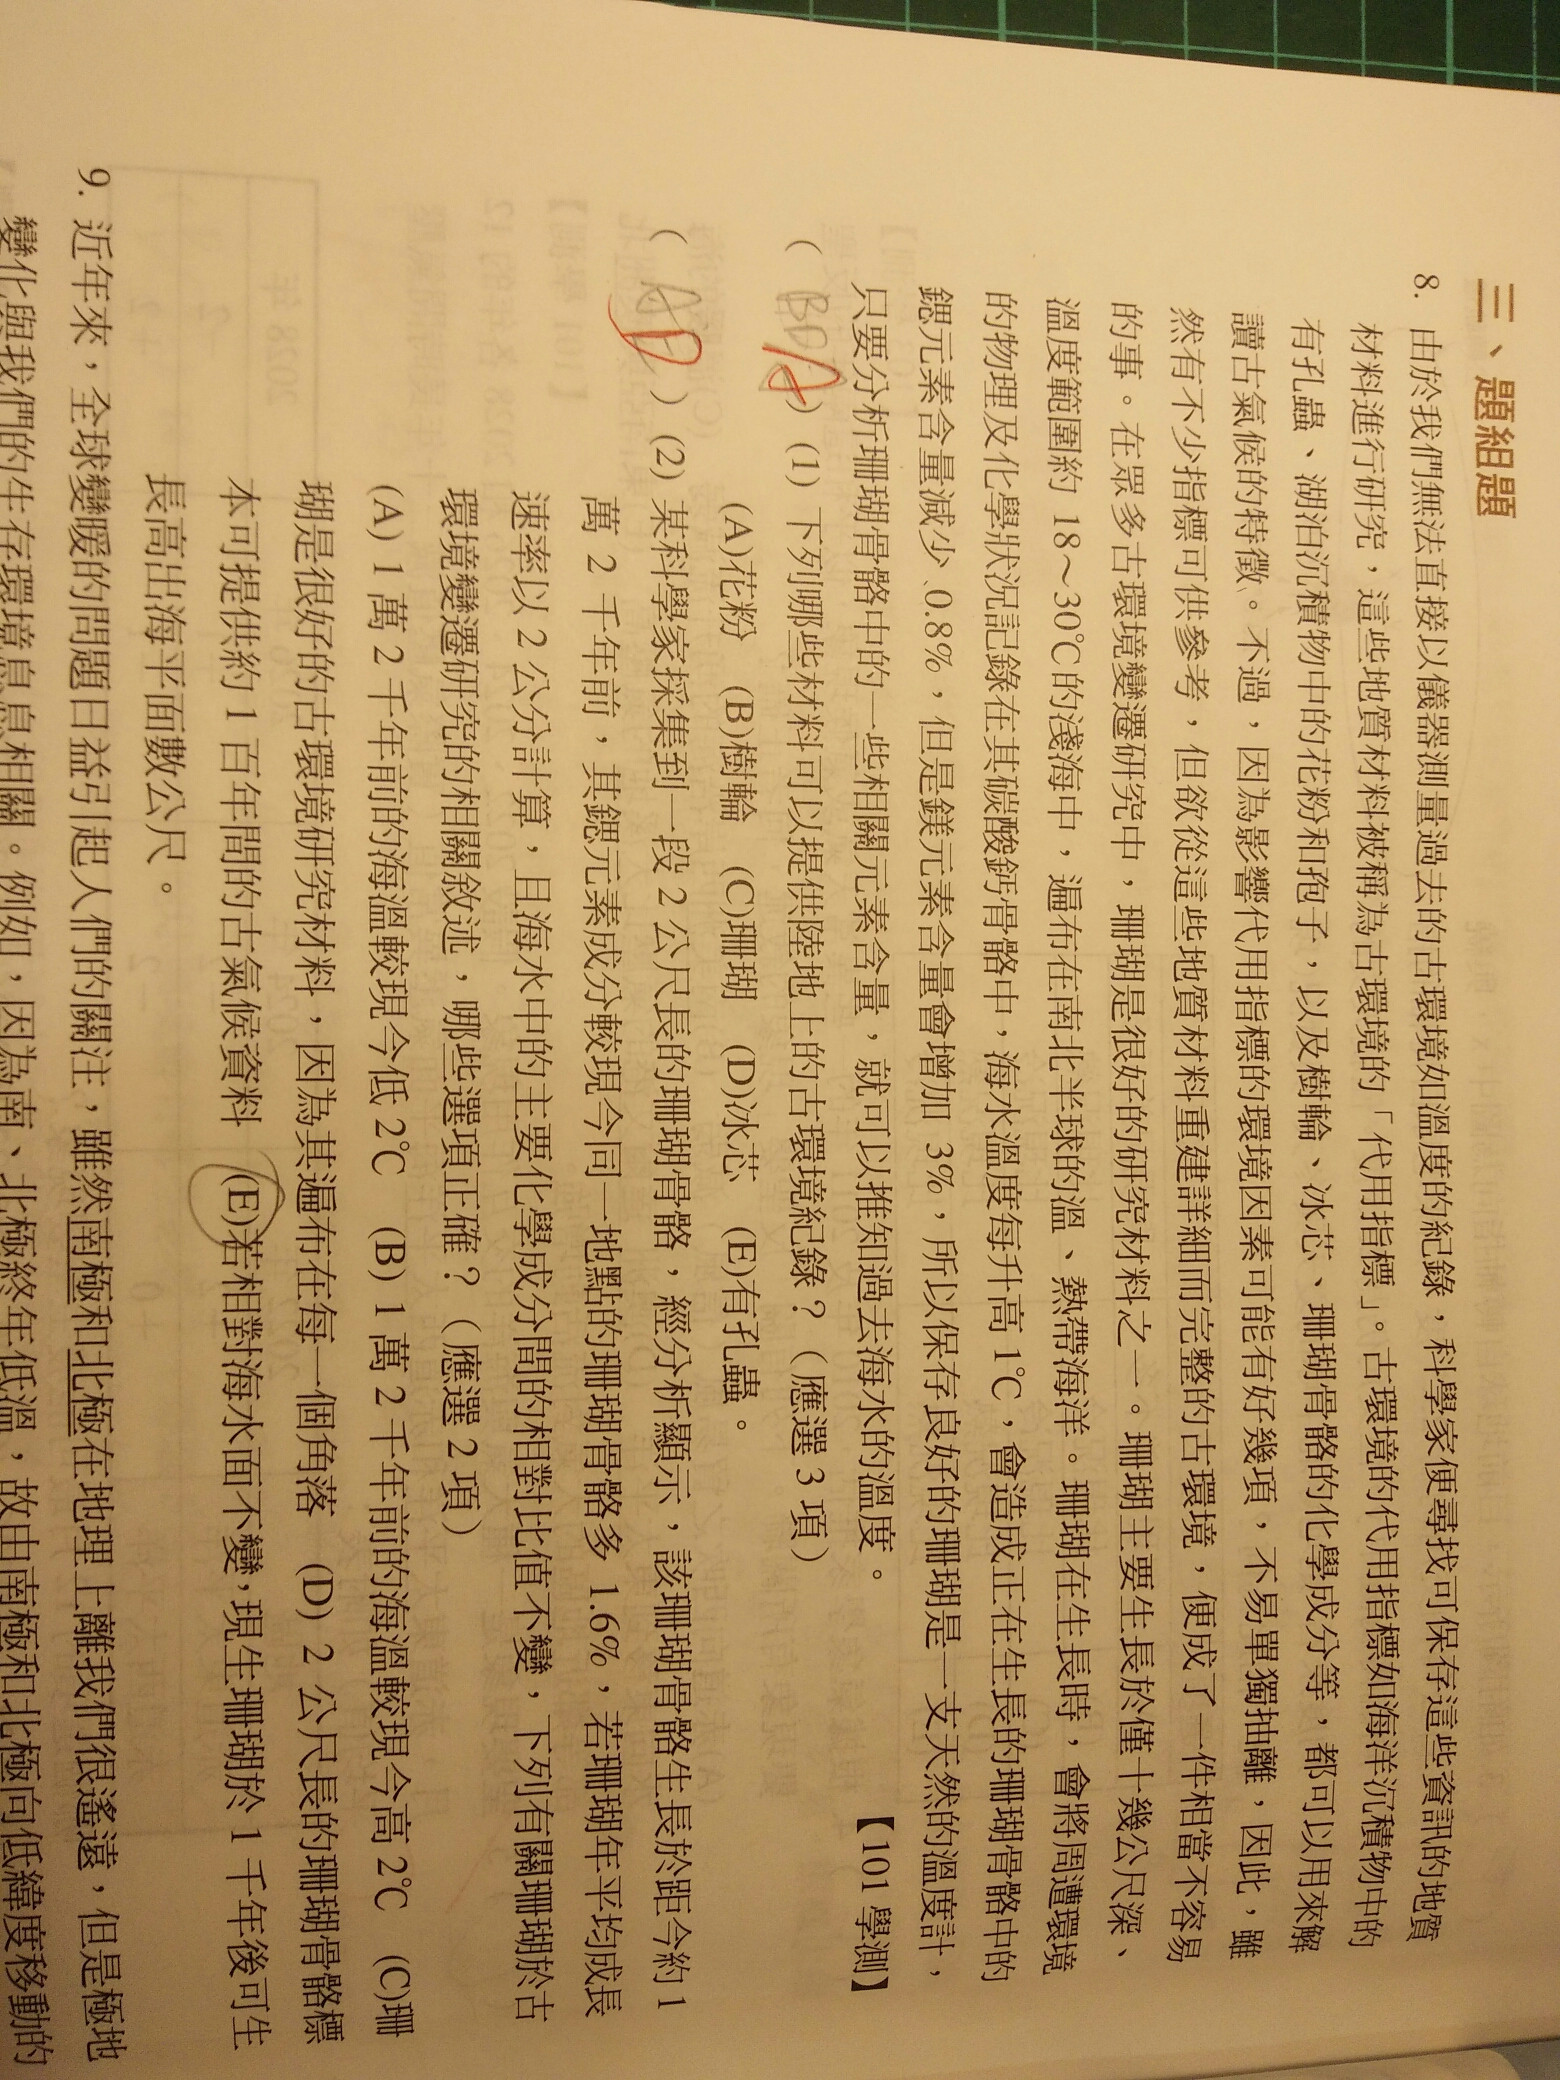 三、題組題
8. 由於我們無法直接以儀器測量過去的古環境如溫度的紀錄，科學家便尋找可保存這些資訊的地質
材料進行研究，這些地質材料被稱為古環境的「代用指標」。古環境的代用指標如海洋沉積物中的
有孔蟲、湖泊沉積物中的花粉和孢子，以及樹輪、冰芯、珊瑚骨骼的化學成分等，都可以用來解
讀古氣候的特徵。不過，因為影響代用指標的環境因素可能有好幾項，不易單獨抽離，因此，雖
然有不少指標可供參考，但欲從這些地質材料重建詳細而完整的古環境，便成了一件相當不容易
的事。在眾多古環境變遷研究中，珊瑚是很好的研究材料之一。珊瑚主要生長於僅十幾公尺深、
溫度範圍約 18～30℃的淺海中，遍布在南北半球的溫、熱帶海洋。珊瑚在生長時，會將周遭環境
的物理及化學狀況記錄在其碳酸鈣骨骼中，海水溫度每升高 1℃，會造成正在生長的珊瑚骨骼中的
鍶元素含量減少 0.8%，但是鎂元素含量會增加 3%，所以保存良好的珊瑚是一支天然的溫度計，
只要分析珊瑚骨骼中的一些相關元素含量，就可以推知過去海水的溫度。 【101 學測】
( ) (1) 下列哪些材料可以提供陸地上的古環境紀錄？（應選 3 項）
(A)花粉 (B)樹輪 (C)珊瑚 (D)冰芯 (E)有孔蟲。
( ) (2) 某科學家採集到一段 2 公尺長的珊瑚骨骼，經分析顯示，該珊瑚骨骼生長於距今約 1
萬 2 千年前，其鍶元素成分較現今同一地點的珊瑚骨骼多 1.6%，若珊瑚年平均成長
速率以 2 公分計算，且海水中的主要化學成分間的相對比值不變，下列有關珊瑚於古
環境變遷研究的相關敘述，哪些選項正確？（應選 2 項）
(A) 1 萬 2 千年前的海溫較現今低 2℃ (B) 1 萬 2 千年前的海溫較現今高 2℃ (C)珊
瑚是很好的古環境研究材料，因為其遍布在每一個角落 (D) 2 公尺長的珊瑚骨骼標
本可提供約 1 百年間的古氣候資料 (E)若相對海水面不變，現生珊瑚於 1 千年後可生
長高出海平面數公尺。
9. 近年來，全球變暖的問題日益引起人們的關注，雖然南極和北極在地理上離我們很遙遠，但是極地
變化與我們的生存環境息息相關。例如，因為南、北極終年低溫，故由南極和北極向低緯度移動的